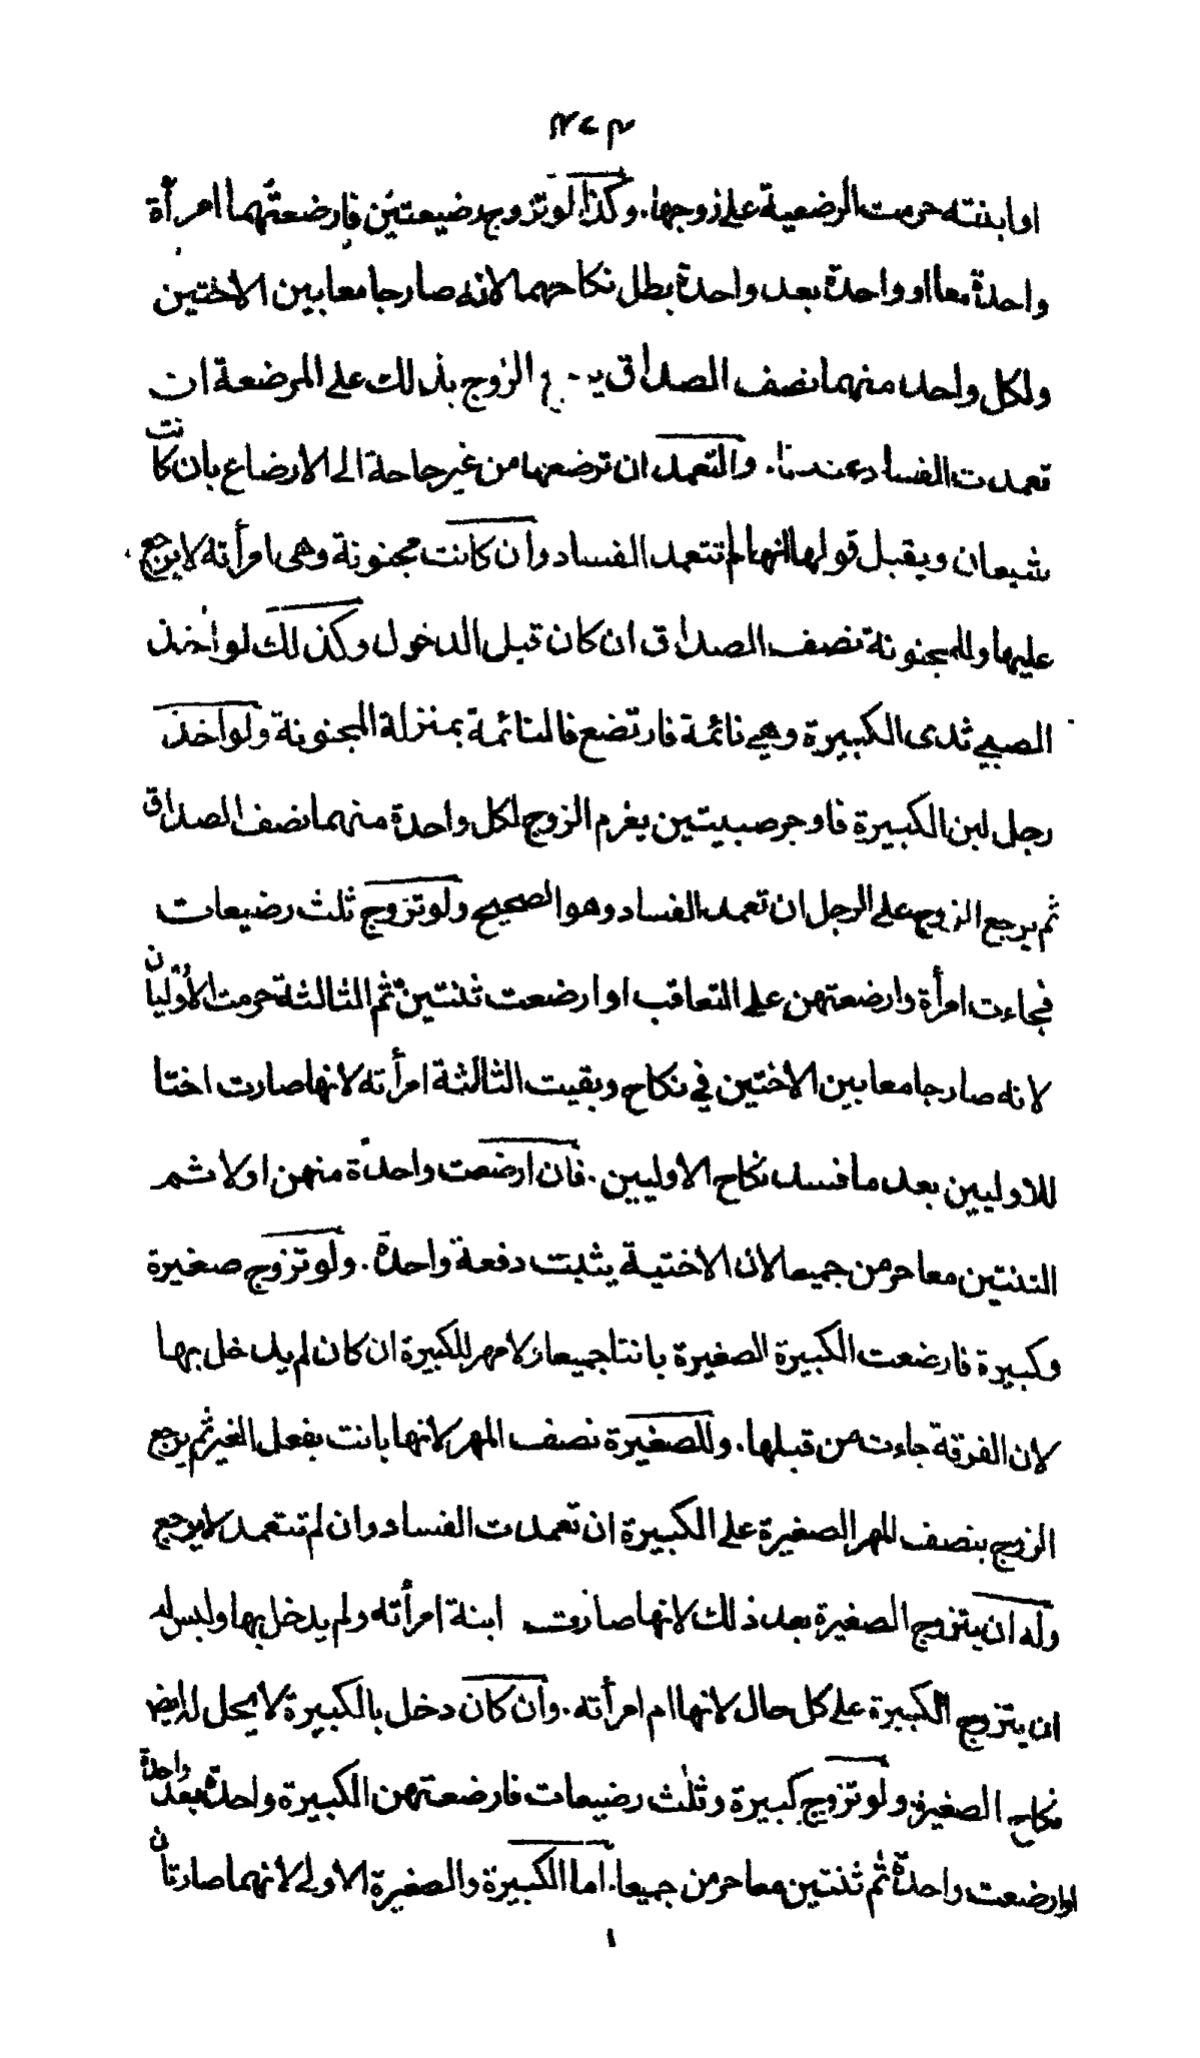 او ابنته حرمت الرضعية على زوجها. وكذا لو تزوج رضيعتين فارضعتهما امرأة
واحدة معا او واحدة بعد واحدة بطل نكاحهما لانه صار جامعا بين الاختين
ولكل واحد منهما نصف الصداق الزوج بذلك على المرضعة ان
تعمدت الفساد عندنا. والتعمد ان ترضعها من غير حاجة الى الارضاع بان كانت
شبعان ويقبل قولها انها لم تتعمد الفساد وان كانت مجنونة وهى امرأته لا يرجع
عليها وللمجنونة نصف الصداق ان كان قبل الدخول وكذلك لو اخذ
الصبي ثدى الكبيرة وهي نائمة فارتضع فالنائمة بمنزلة المجنونة ولو اخذ
رجل لبن الكبيرة فاوجر صبيتين يغرم الزوج لكل واحدة منهما نصف الصداق
ثم يرجع الزوج على الرجل ان تعمد الفساد وهو الصحيح ولو تزوج ثلث رضيعات
فجاءت امرأة وارضعتهن على التعاقب او ارضعت ثنتين ثم الثالثة حرمت الأوليان
لانه صار جامعا بين الاختين في نكاح وبقيت الثالثة امرأته لانها صارت اختا
للاوليين بعد ما فسد نكاح الاوليين. فان ارضعت واحدة منهن اولا ثم
الثنتين معا حرمن جميعا لان الاختية يثبت دفعة واحدة. ولو تزوج صغيرة
وكبيرة فارضعت الكبيرة الصغيرة بانتا جميعا ولا مهر للكبيرة ان كان لم يدخل بها
لان الفرقة جاءت من قبلها. وللصغيرة نصف المهر لانها بانت بفعل الغير ثم يرجع
الزوج بنصف المهر الصغيرة على الكبيرة ان تعمدت الفساد وان لم تتعمد لا يرجع
وله ان يتزوج الصغيرة بعد ذلك لانها صارت ابنة امرأته ولم يدخل بها وليس له
ان يتزوج الكبيرة على كل حال لانها ام امرأته. وان كان دخل بالكبيرة لا يحل له ايضا
نكاح الصغيرة ولو تزوج كبيرة وثلث رضيعات فارضعتهن الكبيرة واحدة بعد واحدة
او ارضعت واحدة ثم ثنتين معا حرمن جميعا. اما الكبيرة والصغيرة الاولى لانهما صارتا
١